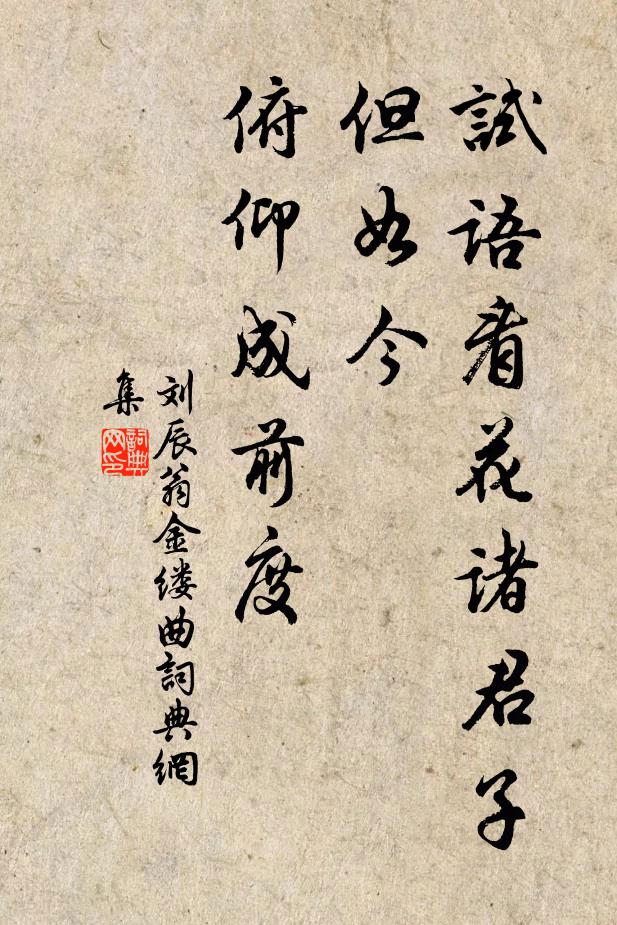 試语看花诸君子
但如今
俯仰成前度
刘辰翁金缕曲詞典網
集
詞典网印